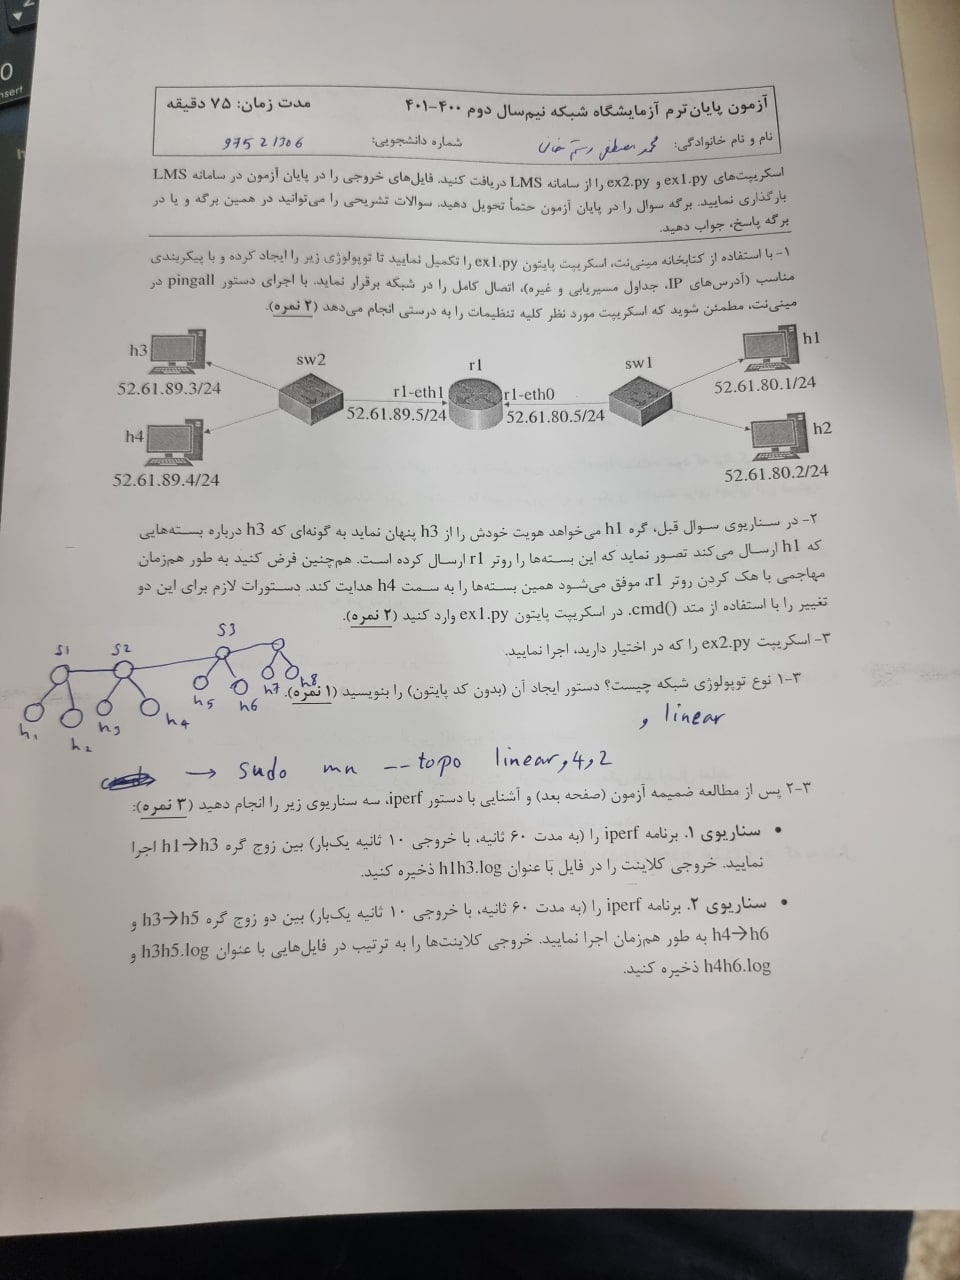 آزمون پایان‌ترم آزمایشگاه شبکه نیم‌سال دوم ۴۰۰-۴۰۱ مدت زمان: ۷۵ دقیقه
نام و نام خانوادگی: محمد مصطفی رستم خانی شماره دانشجویی: 97521306
اسکریپت‌های ex1.py و ex2.py را از سامانه LMS دریافت کنید. فایل‌های خروجی را در پایان آزمون در سامانه LMS
بارگذاری نمایید. برگه سوال را در پایان آزمون حتماً تحویل دهید. سوالات تشریحی را می‌توانید در همین برگه و یا در
برگه پاسخ، جواب دهید.
۱- با استفاده از کتابخانه مینی‌نت، اسکریپت پایتون ex1.py را تکمیل نمایید تا توپولوژی زیر را ایجاد کرده و با پیکربندی
مناسب (آدرس‌های IP، جداول مسیریابی و غیره)، اتصال کامل را در شبکه برقرار نماید. با اجرای دستور pingall در
مینی‌نت، مطمئن شوید که اسکریپت مورد نظر کلیه تنظیمات را به درستی انجام می‌دهد (۲ نمره).
h3
52.61.89.3/24
h4
52.61.89.4/24
sw2
r1-eth1
52.61.89.5/24
r1
r1-eth0
52.61.80.5/24
sw1
h1
52.61.80.1/24
h2
52.61.80.2/24
۲- در سناریوی سوال قبل، گره h1 می‌خواهد هویت خودش را از h3 پنهان نماید به گونه‌ای که h3 درباره بسته‌هایی
که h1 ارسال می‌کند تصور نماید که این بسته‌ها را روتر r1 ارسال کرده است. هم‌چنین فرض کنید به طور هم‌زمان
مهاجمی با هک کردن روتر r1، موفق می‌شود همین بسته‌ها را به سمت h4 هدایت کند. دستورات لازم برای این دو
تغییر را با استفاده از متد cmd(). در اسکریپت پایتون ex1.py وارد کنید (۲ نمره).
۳- اسکریپت ex2.py را که در اختیار دارید، اجرا نمایید.
S1 S2 S3
h1 h2 h3 h4 h5 h6 h7 h8
۳-۱ نوع توپولوژی شبکه چیست؟ دستور ایجاد آن (بدون کد پایتون) را بنویسید (۱ نمره).
linear و
→ sudo mn --topo linear,4,2
۳-۲ پس از مطالعه ضمیمه آزمون (صفحه بعد) و آشنایی با دستور iperf، سه سناریوی زیر را انجام دهید (۳ نمره):
• سناریوی ۱. برنامه iperf را (به مدت ۶۰ ثانیه، با خروجی ۱۰ ثانیه یک‌بار) بین زوج گره h1→h3 اجرا
نمایید. خروجی کلاینت را در فایل با عنوان h1h3.log ذخیره کنید.
• سناریوی ۲. برنامه iperf را (به مدت ۶۰ ثانیه، با خروجی ۱۰ ثانیه یک‌بار) بین دو زوج گره h3→h5 و
h4→h6 به طور هم‌زمان اجرا نمایید. خروجی کلاینت‌ها را به ترتیب در فایل‌هایی با عنوان h3h5.log و
h4h6.log ذخیره کنید.